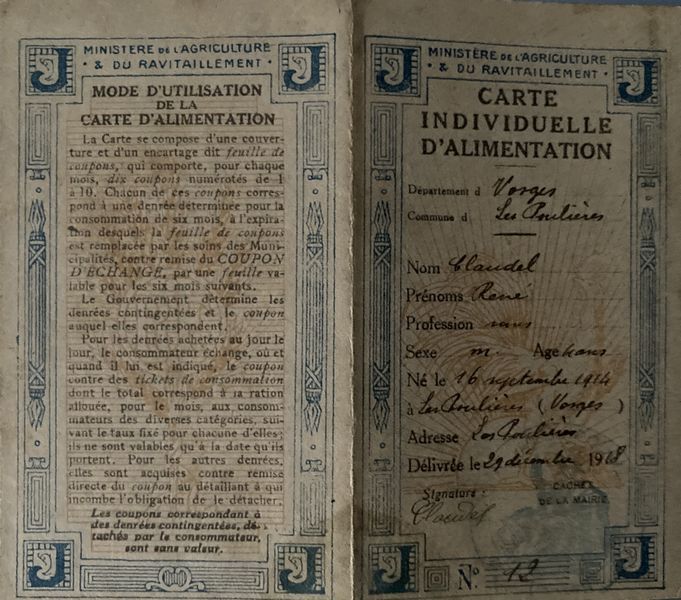 MINISTÈRE DE L'AGRICULTURE
• & DU RAVITAILLEMENT •
MODE D'UTILISATION
DE LA
CARTE D'ALIMENTATION
La Carte se compose d'une couver-
ture et d'un encartage dit feuille de
coupons, qui comporte, pour chaque
mois, dix coupons numérotés de 1
à 10. Chacun de ces coupons corres-
pond à une denrée déterminée pour la
consommation de six mois, à l'expira-
tion desquels la feuille de coupons
est remplacée par les soins des Muni-
cipalités, contre remise du COUPON
D'ÉCHANGE, par une feuille va-
lable pour les six mois suivants.
Le Gouvernement détermine les
denrées contingentées et le coupon
auquel elles correspondent.
Pour les denrées achetées au jour le
jour, le consommateur échange, où et
quand il lui est indiqué, le coupon
contre des tickets de consommation
dont le total correspond à sa ration
allouée, pour le mois, aux consom-
mateurs des diverses catégories, sui-
vant le taux fixé pour chacune d'elles;
ils ne sont valables qu'à la date qu'ils
portent. Pour les autres denrées,
elles sont acquises contre remise
directe du coupon au détaillant à qui
incombe l'obligation de le détacher.
Les coupons correspondant à
des denrées contingentées, dé-
tachés par le consommateur,
sont sans valeur.
MINISTÈRE DE L'AGRICULTURE
• & DU RAVITAILLEMENT •
CARTE
INDIVIDUELLE
D'ALIMENTATION
Département d Vosges
Commune d Les Poulières
Nom Claudel
Prénoms René
Profession sans
Sexe m. Age 4 ans
Né le 16 septembre 1914
à Les Poulières (Vosges)
Adresse Les Poulières
Délivrée le 29 décembre 1918
Signature :
Claudel
CACHET
DE LA MAIRIE
N° 12